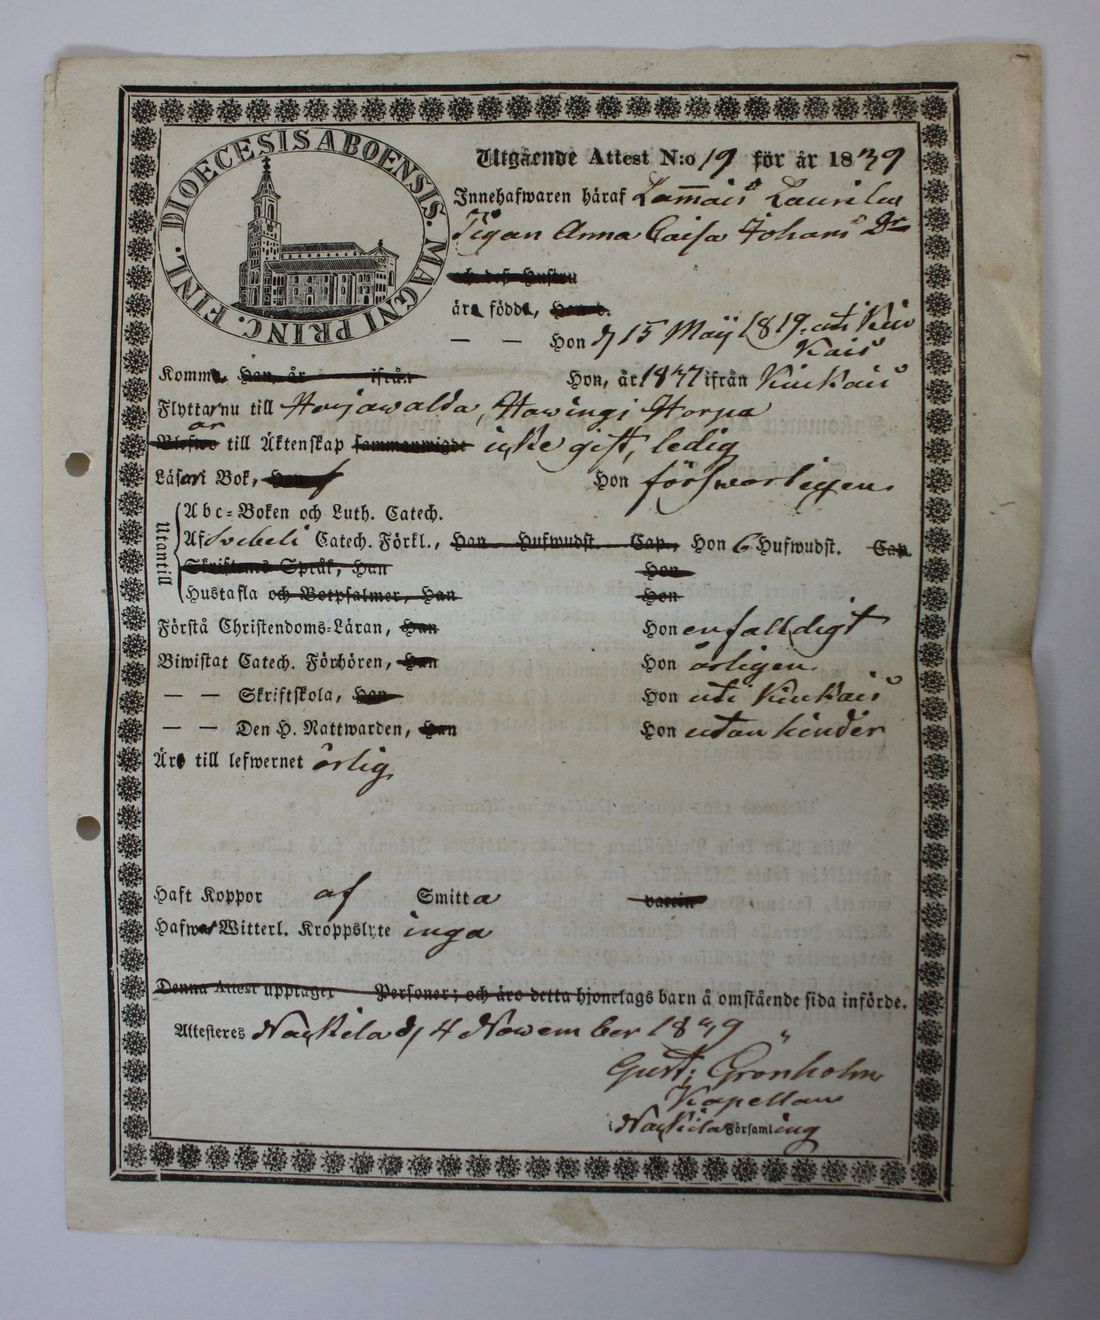 DIOECESIS ABOENSIS. MAGNI PRINC. FINL.
Utgående Attest N:o 19 för år 1839
Innehafwaren häraf Lammais Laurila
Pigan Anna Caisa Johans Dr
är född,
— — Hon d 15 Maij 1819. uti Kiu
kais
Komm Han, år ifrån Hon, år 1837 ifrån Kiukais
Flyttar nu till Harjawalda, Hawingi Torpa
är till Äktenskap sammanwigde icke gift, ledig
Läser i Bok, Hon förswarligen
Utantill
Abc-Boken och Luth. Catech.
Af Svebeli Catech. Förkl., Han Hufwudst. Cap., Hon 6 Hufwudst. Cap.
Skriftens Språk, Han Hon
Hustafla och Botpsalmer, Han Hon
Förstå Christendoms-Läran, Han Hon enfalldigt
Biwistat Catech. Förhören, Han Hon årligen
— — Skriftskola, Han Hon uti Kiukais
— — Den H. Nattwarden, Han Hon utan hinder
Är till lefwernet ärlig
Haft Koppor af Smitta vaccin
Hafwer Witterl. Kroppslyte inga
Denna Attest upptager Personer; och äro detta hjonelags barn å omstående sida införde.
Attesteres Nackila d 4 November 1839
Gust: Grönholm
Kapellan
i Nackila Församling